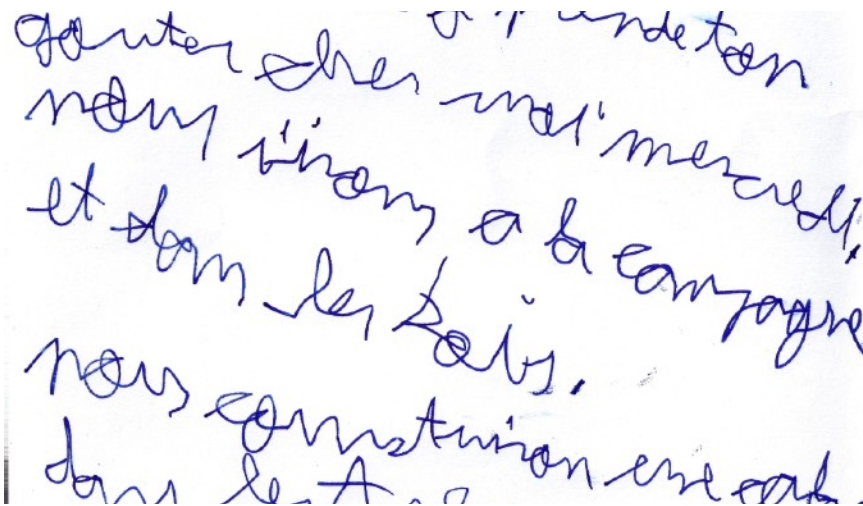 prendeton
gouter chez moi mercredi,
nous iirons a la campagne
et dans les bois.
nous constuiron une cab
dans les